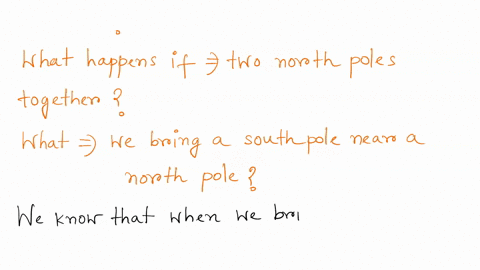 What happens if ⇒ two north poles
together?
What ⇒ we bring a south pole near a
north pole?
We know that when we bri